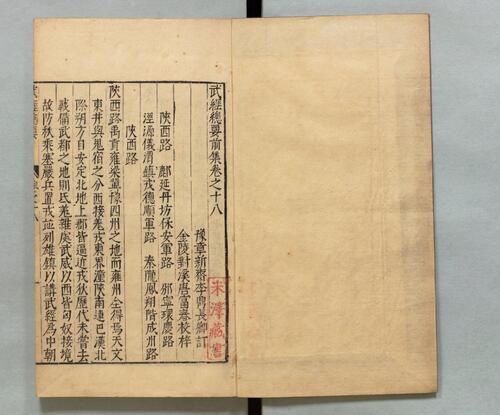 武經總要前集卷之十八
豫章新齋李鼎長卿訂
金陵對溪唐富春校梓
陝西路 鄜延丹坊休安軍路 邠寧環慶路
涇源儀渭鎮戎德順軍路 秦隴鳳翔階成州路
陝西路
陝西路禹貢雍梁冀豫四州之地而雍州全得焉天文
東井與鬼宿之分西接羌戎東界潼陝南連巴漢北
際朔方自安定北地上郡皆逼近戎狄歷代未嘗去
戰備武都之地則氐羌雜處武威以西皆匈奴接境
故防秋乘塞嚴兵置戎竝列雄鎮以講武經爲中朝